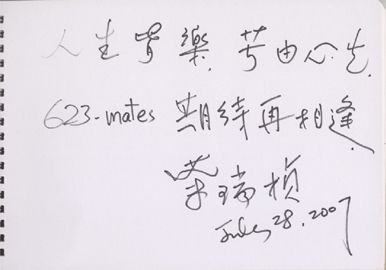 人生皆樂, 苦由心生.
623-mates 期待再相逢.
葉瑞楨
July 28, 2007